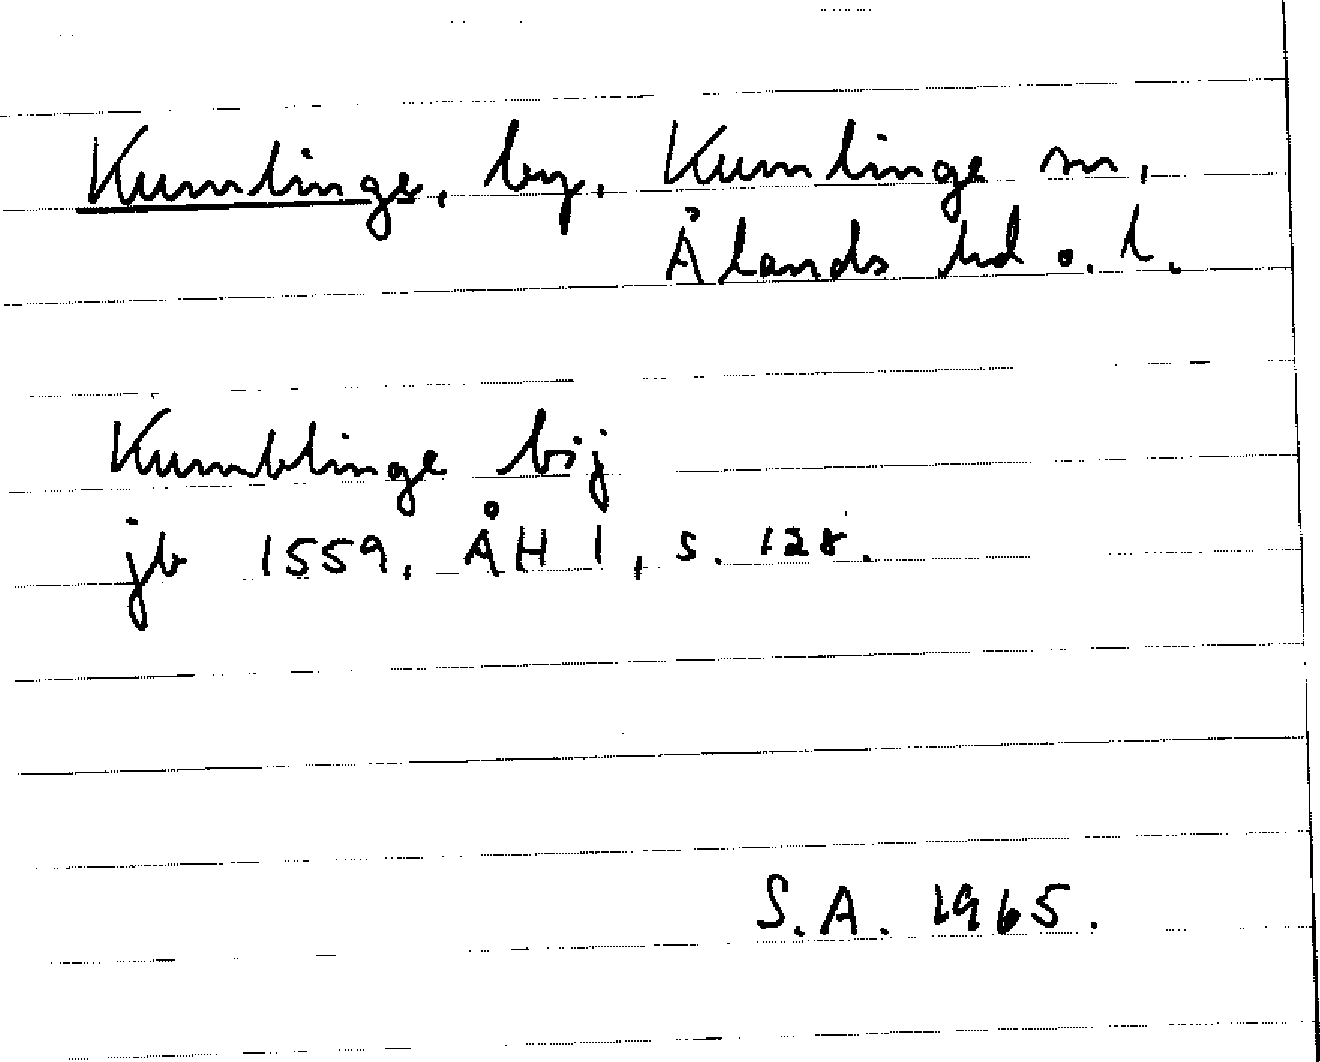 Kumlinge, by, Kumlinge sn,
Ålands hd o. l.
Kumblinge bij
jb 1559. ÅH 1, s. 128.
S.A. 1965.